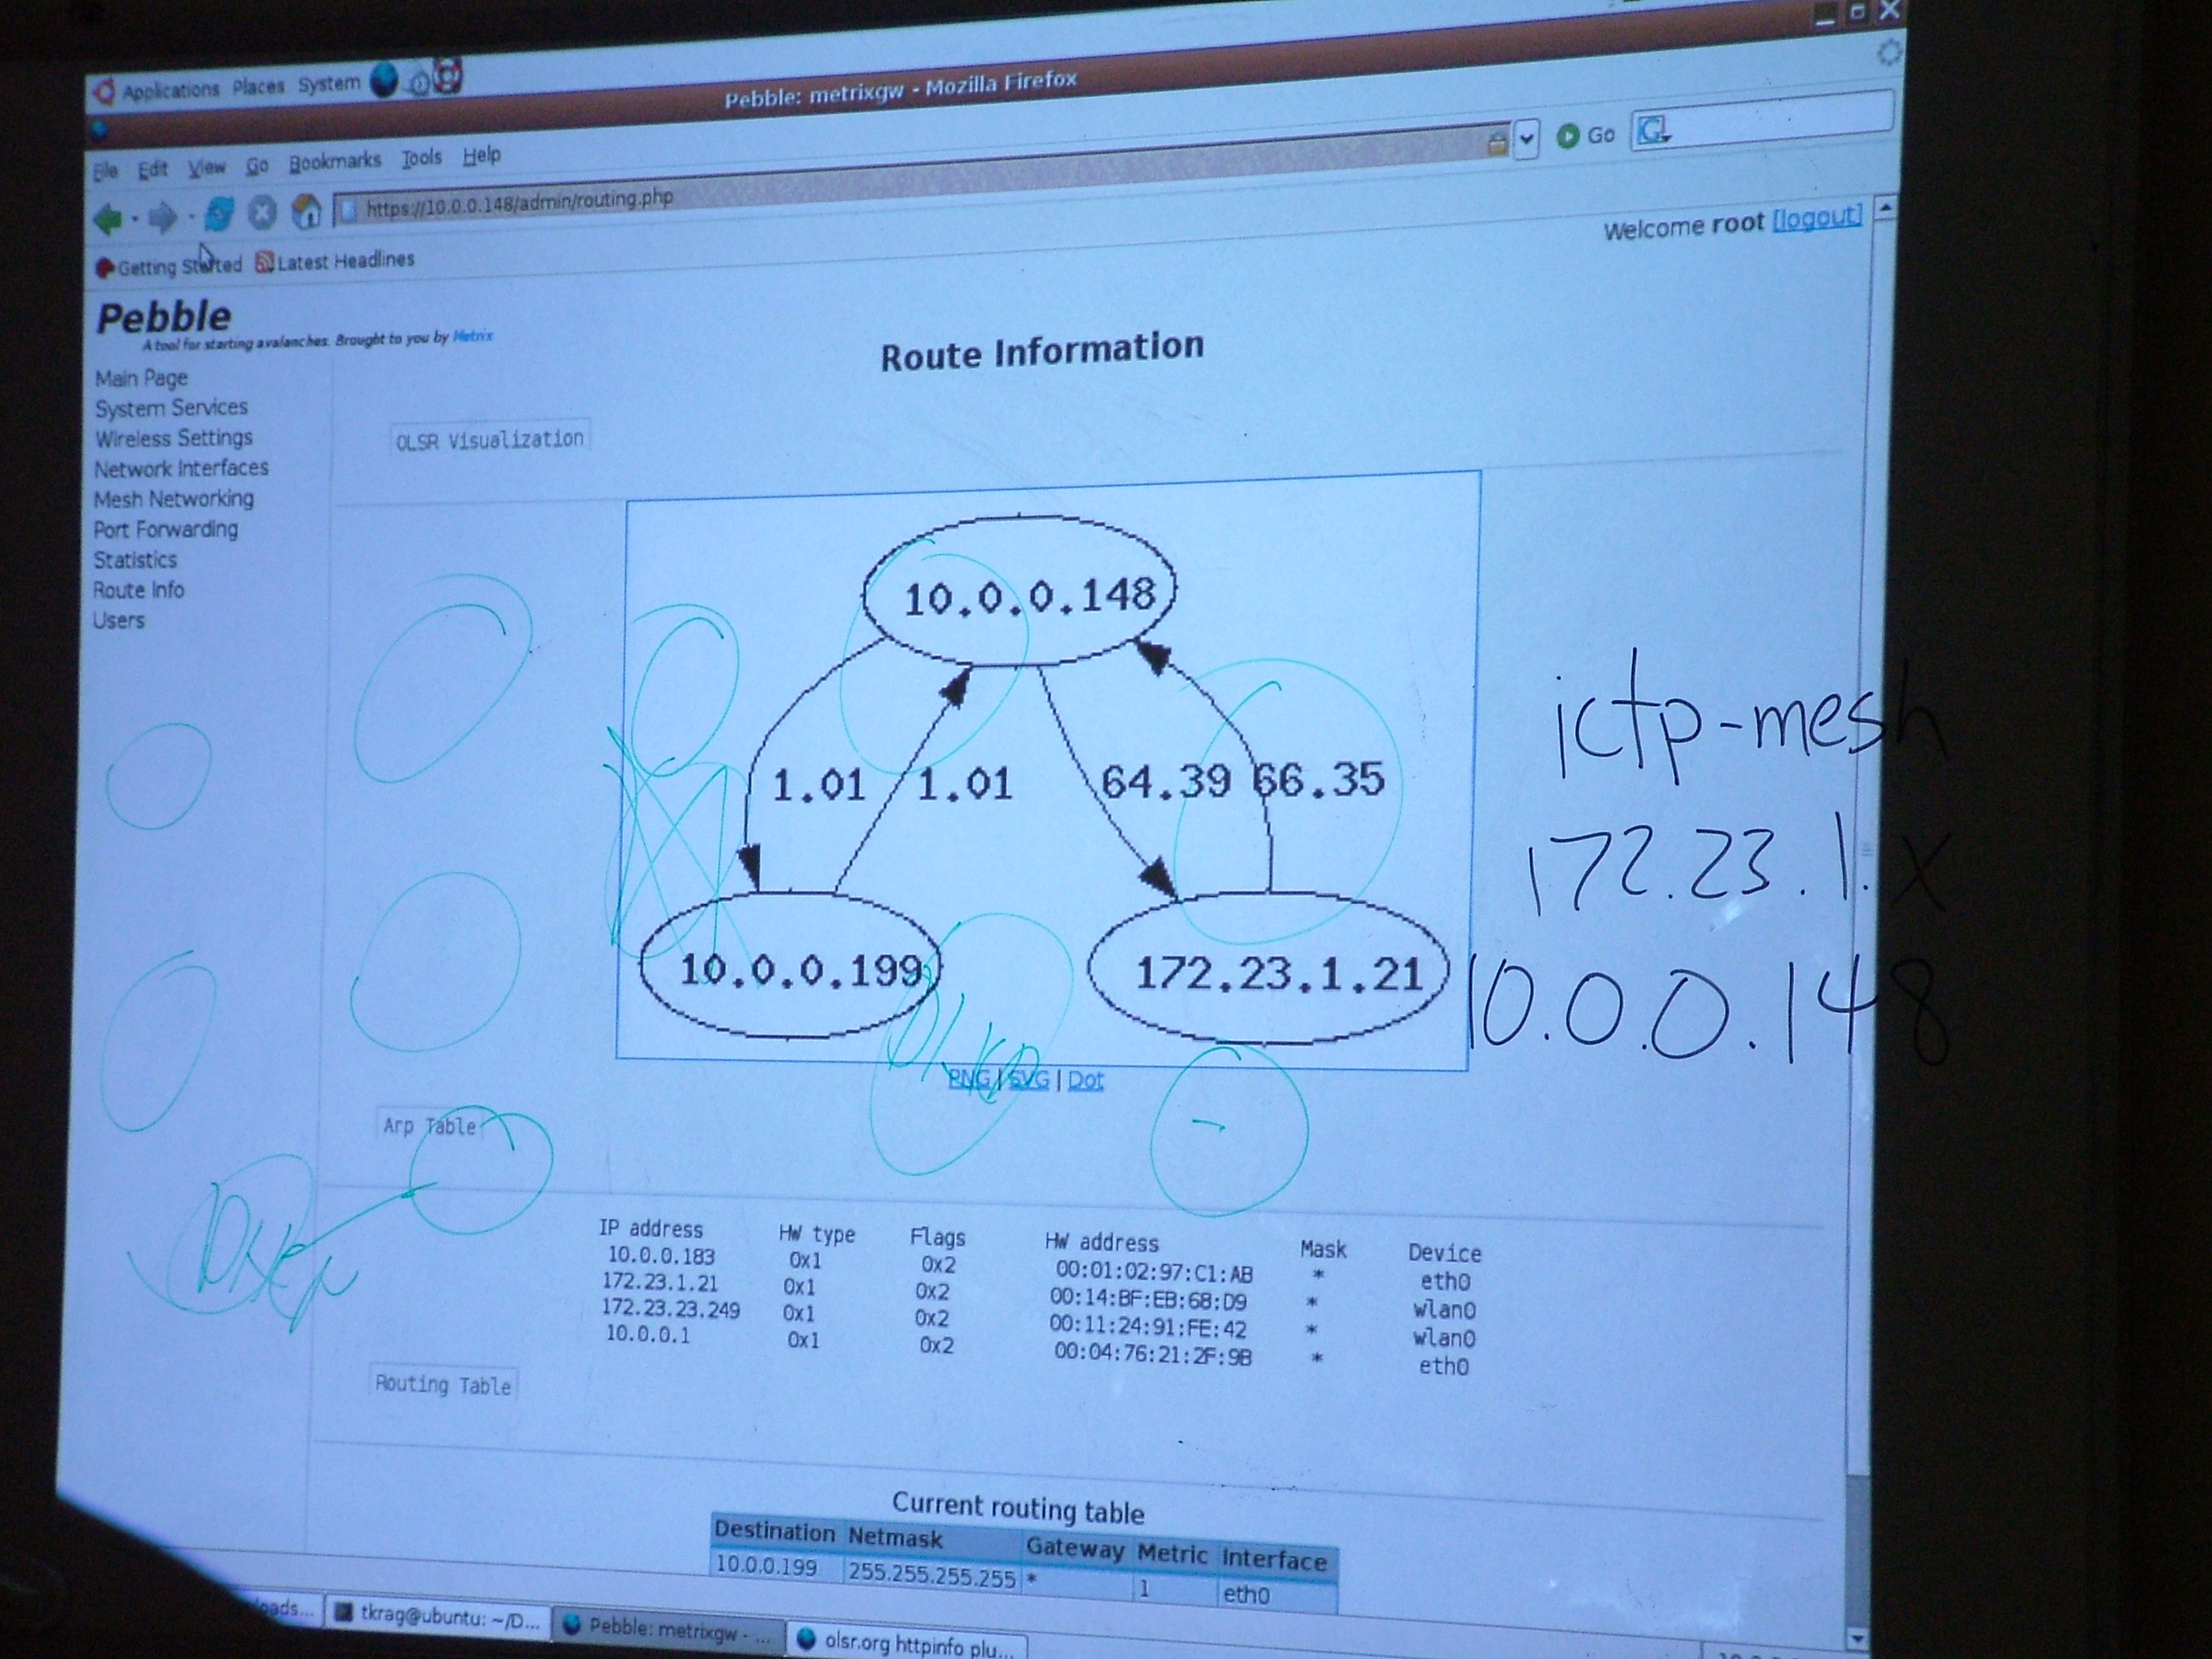 Applications Places System
Pebble: metrixgw - Mozilla Firefox
File Edit View Go Bookmarks Tools Help
https://10.0.0.148/admin/routing.php
Go
G
Getting Started Latest Headlines
Welcome root [logout]
Pebble
A tool for starting avalanches. Brought to you by Metrix
Main Page
System Services
Wireless Settings
Network Interfaces
Mesh Networking
Port Forwarding
Statistics
Route Info
Users
Route Information
OLSR Visualization
10.0.0.148
1.01 1.01 64.39 66.35
10.0.0.199 172.23.1.21
PNG | SVG | Dot
ictp-mesh
172.23.1.x
10.0.0.148
Arp Table
IP address HW type Flags HW address Mask Device
10.0.0.183 0x1 0x2 00:01:02:97:C1:AB * eth0
172.23.1.21 0x1 0x2 00:14:BF:EB:68:D9 * wlan0
172.23.23.249 0x1 0x2 00:11:24:91:FE:42 * wlan0
10.0.0.1 0x1 0x2 00:04:76:21:2F:9B * eth0
Routing Table
Current routing table
Destination Netmask Gateway Metric Interface
10.0.0.199 255.255.255.255 * 1 eth0
loads... tkrag@ubuntu: ~/D... Pebble: metrixgw - ... olsr.org httpinfo plu...